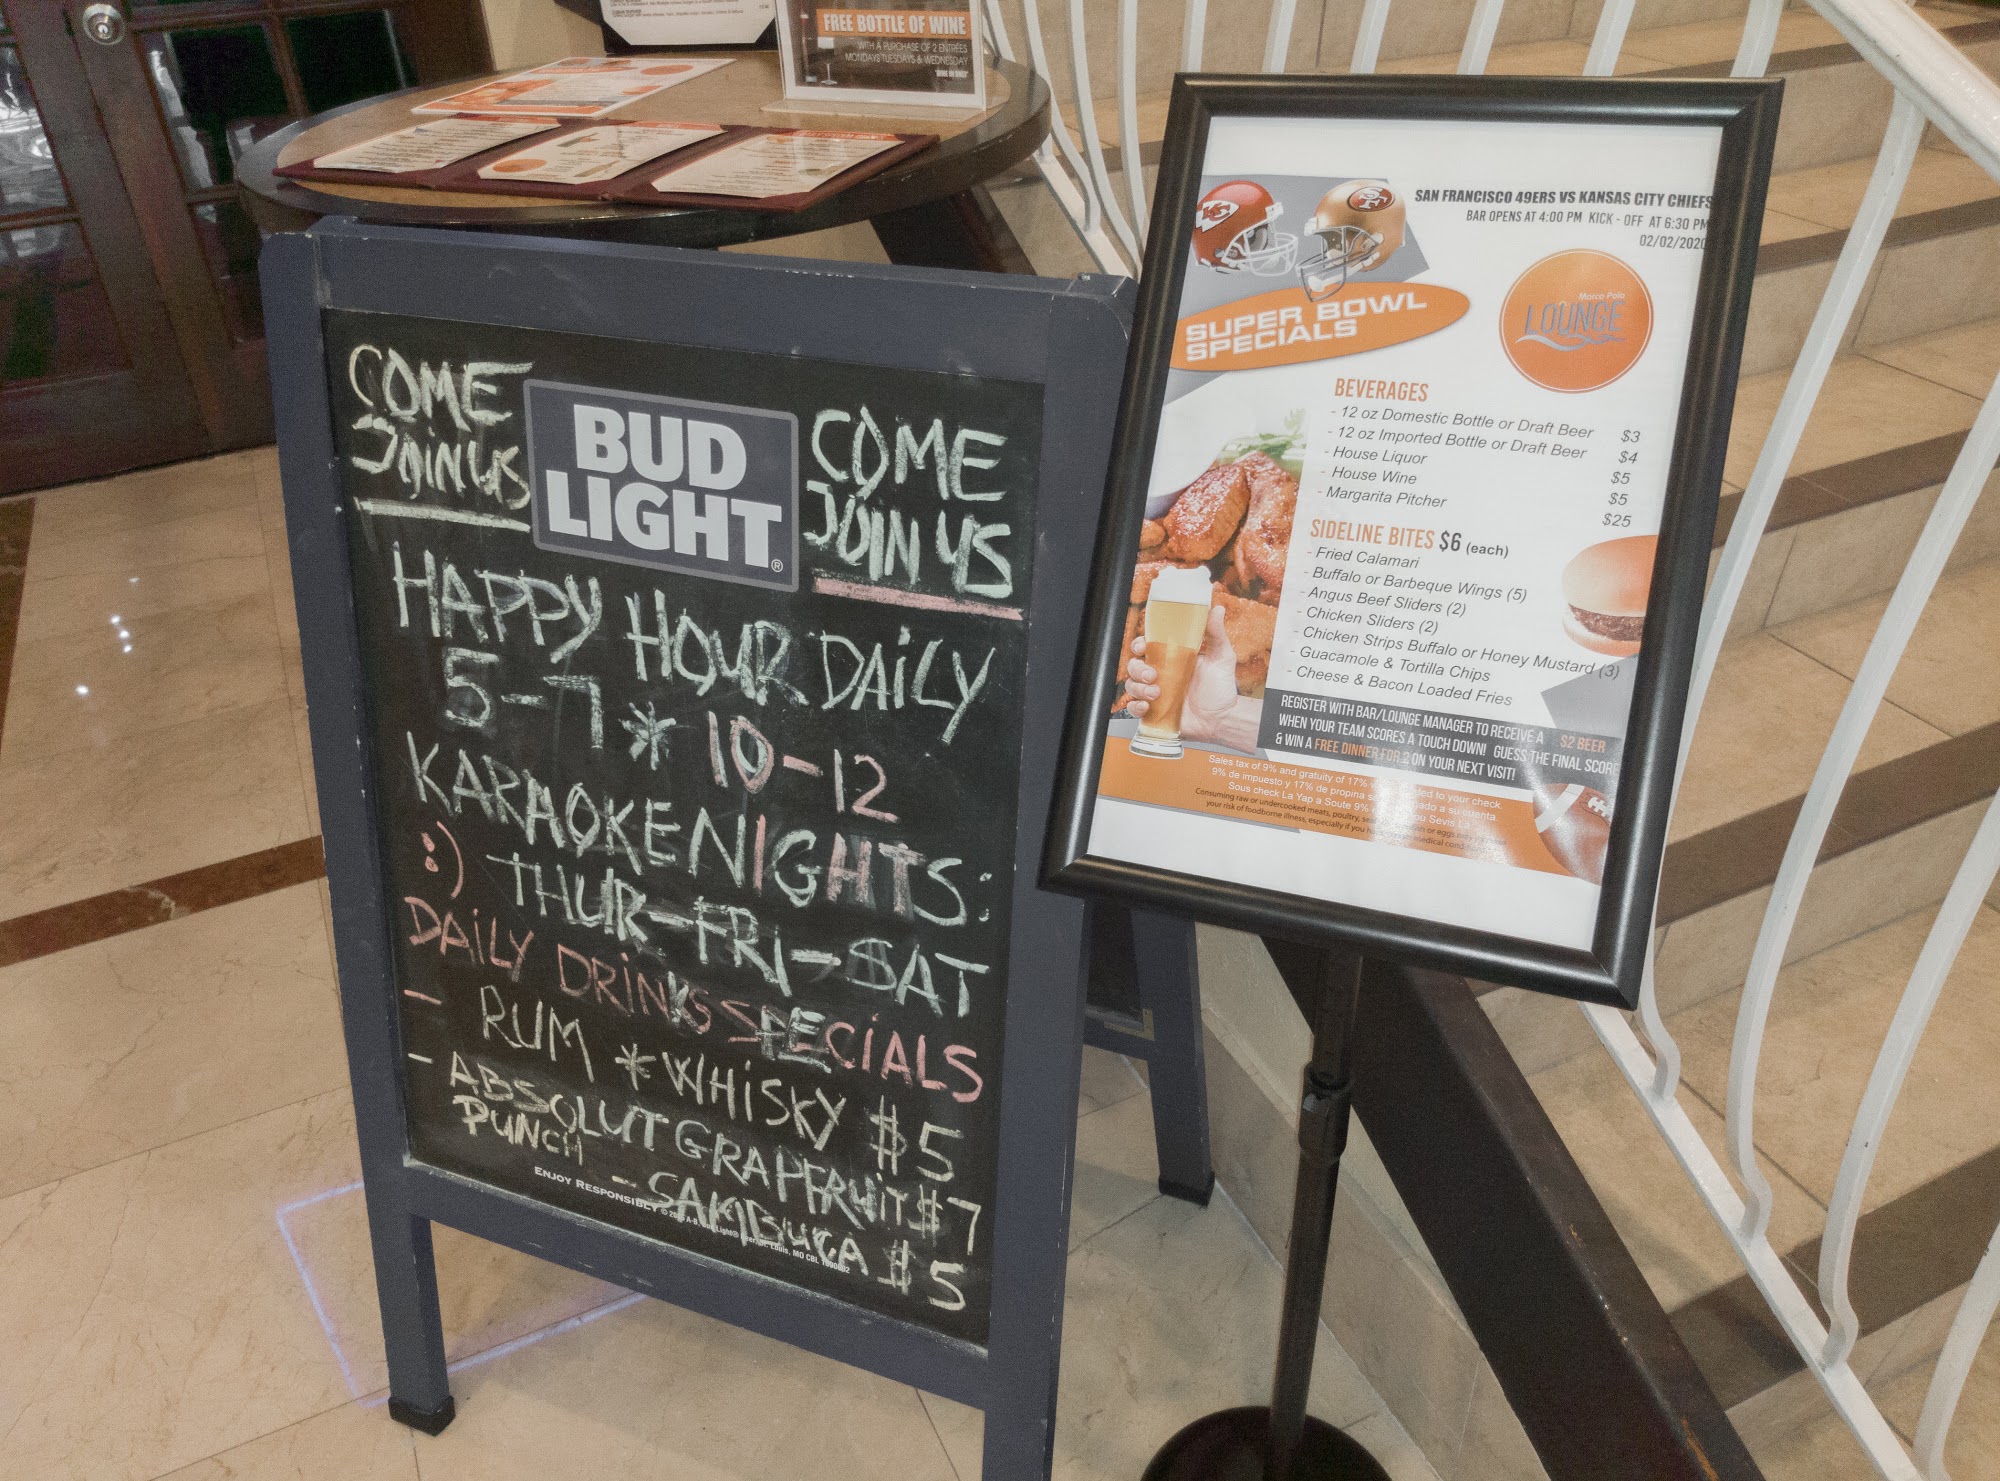 FREE BOTTLE OF WINE
WITH A PURCHASE OF 2 ENTRÉES
MONDAYS TUESDAYS & WEDNESDAY
COME
JOIN US
BUD
LIGHT®
COME
JOIN US
HAPPY HOUR DAILY
5-7 * 10-12
KARAOKE NIGHTS:
:) THUR-FRI-SAT
DAILY DRINKS SPECIALS
- RUM * WHISKY $5
- ABSOLUT GRAPEFRUIT $7
PUNCH
- SAMBUCA $5
ENJOY RESPONSIBLY
SAN FRANCISCO 49ERS VS KANSAS CITY CHIEFS
BAR OPENS AT 4:00 PM KICK - OFF AT 6:30 PM
02/02/2020
SUPER BOWL
SPECIALS
Marco Polo
LOUNGE
BEVERAGES
- 12 oz Domestic Bottle or Draft Beer $3
- 12 oz Imported Bottle or Draft Beer $4
- House Liquor $5
- House Wine $5
- Margarita Pitcher $25
SIDELINE BITES $6 (each)
- Fried Calamari
- Buffalo or Barbeque Wings (5)
- Angus Beef Sliders (2)
- Chicken Sliders (2)
- Chicken Strips Buffalo or Honey Mustard (3)
- Guacamole & Tortilla Chips
- Cheese & Bacon Loaded Fries
REGISTER WITH BAR/LOUNGE MANAGER TO RECEIVE A $2 BEER
WHEN YOUR TEAM SCORES A TOUCH DOWN! GUESS THE FINAL SCORE
& WIN A FREE DINNER FOR 2 ON YOUR NEXT VISIT!
Sales tax of 9% and gratuity of 17% to your check.
9% de impuesto y 17% de propina a su cuenta.
Sous check La Yap a Soute 9% ou Sevis La
Consuming raw or undercooked meats, poultry, or eggs
your risk of foodborne illness, especially if you medical